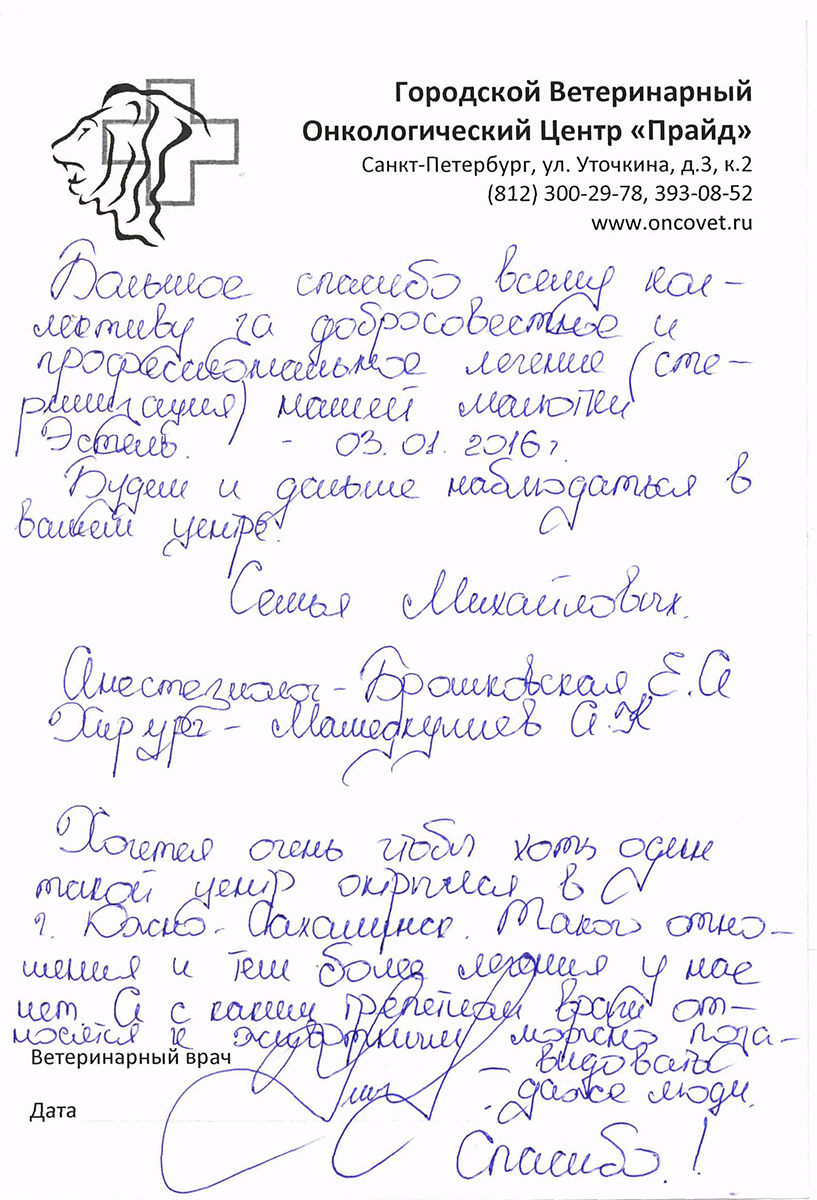 Городской Ветеринарный
Онкологический Центр «Прайд»
Санкт-Петербург, ул. Уточкина, д.3, к.2
(812) 300-29-78, 393-08-52
www.oncovet.ru
Большое спасибо всему кол-
лективу за добросовестное и
профессиональное лечение (сте-
рилизация) нашей малютки
Эстель. - 03.01.2016 г.
Будем и дальше наблюдаться в
вашем центре.
Семья Михайловых.
Анестезиолог - Брошковская Е.А
Хирург - Машедкулиев А.К
Хочется очень чтобы хоть один
такой центр открылся в
г. Южно-Сахалинск. Такого отно-
шения и тем более лечения у нас
нет. А с каким трепетом врачи от-
носятся к животным можно поза-
Ветеринарный врач
- видовать
Дата
даже люди.
Спасибо!